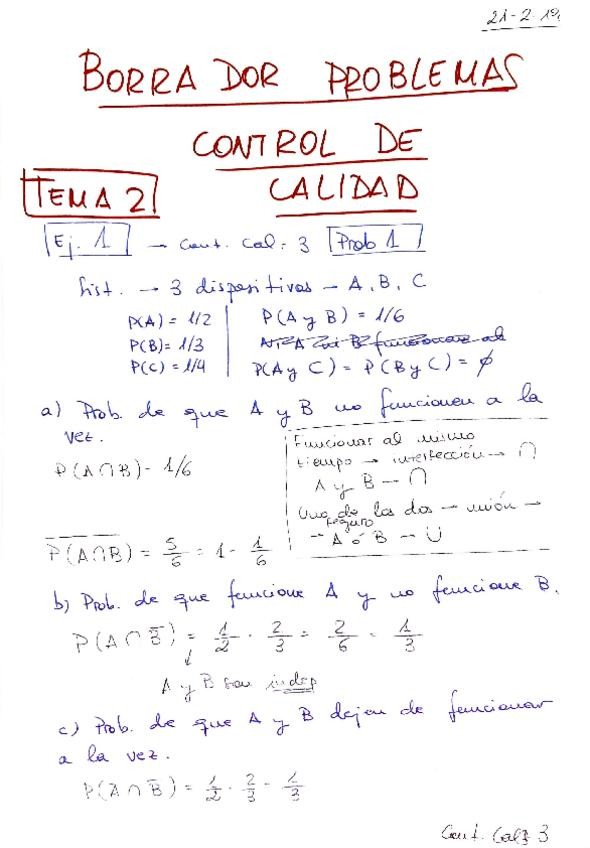 21-2-19
BORRADOR PROBLEMAS
CONTROL DE
CALIDAD
TEMA 2
Ej. 1 → Cont. Cal: 3 Prob 1
Sist. → 3 dispositivos → A, B, C
P(A) = 1/2
P(B) = 1/3
P(C) = 1/4
P(A y B) = 1/6
P(A y C) = P(B y C) = ∅
a) Prob. de que A y B no funcionen a la
vez.
P(A∩B) = 1/6
Funcionar al mismo
tiempo → intersección → ∩
A y B → ∩
Uno de los dos → unión →
seguro
→ A ó B → ∪
P(A∩B)̅ = 5/6 = 1 - 1/6
b) Prob. de que funcione A y no funcione B.
P(A ∩ B̅) = 1/2 · 2/3 = 2/6 = 1/3
↓
A y B son indep
c) Prob. de que A y B dejen de funcionar
a la vez.
P(A̅ ∩ B̅) = 1/2 · 2/3 = 1/3
Cont. Cal: 3